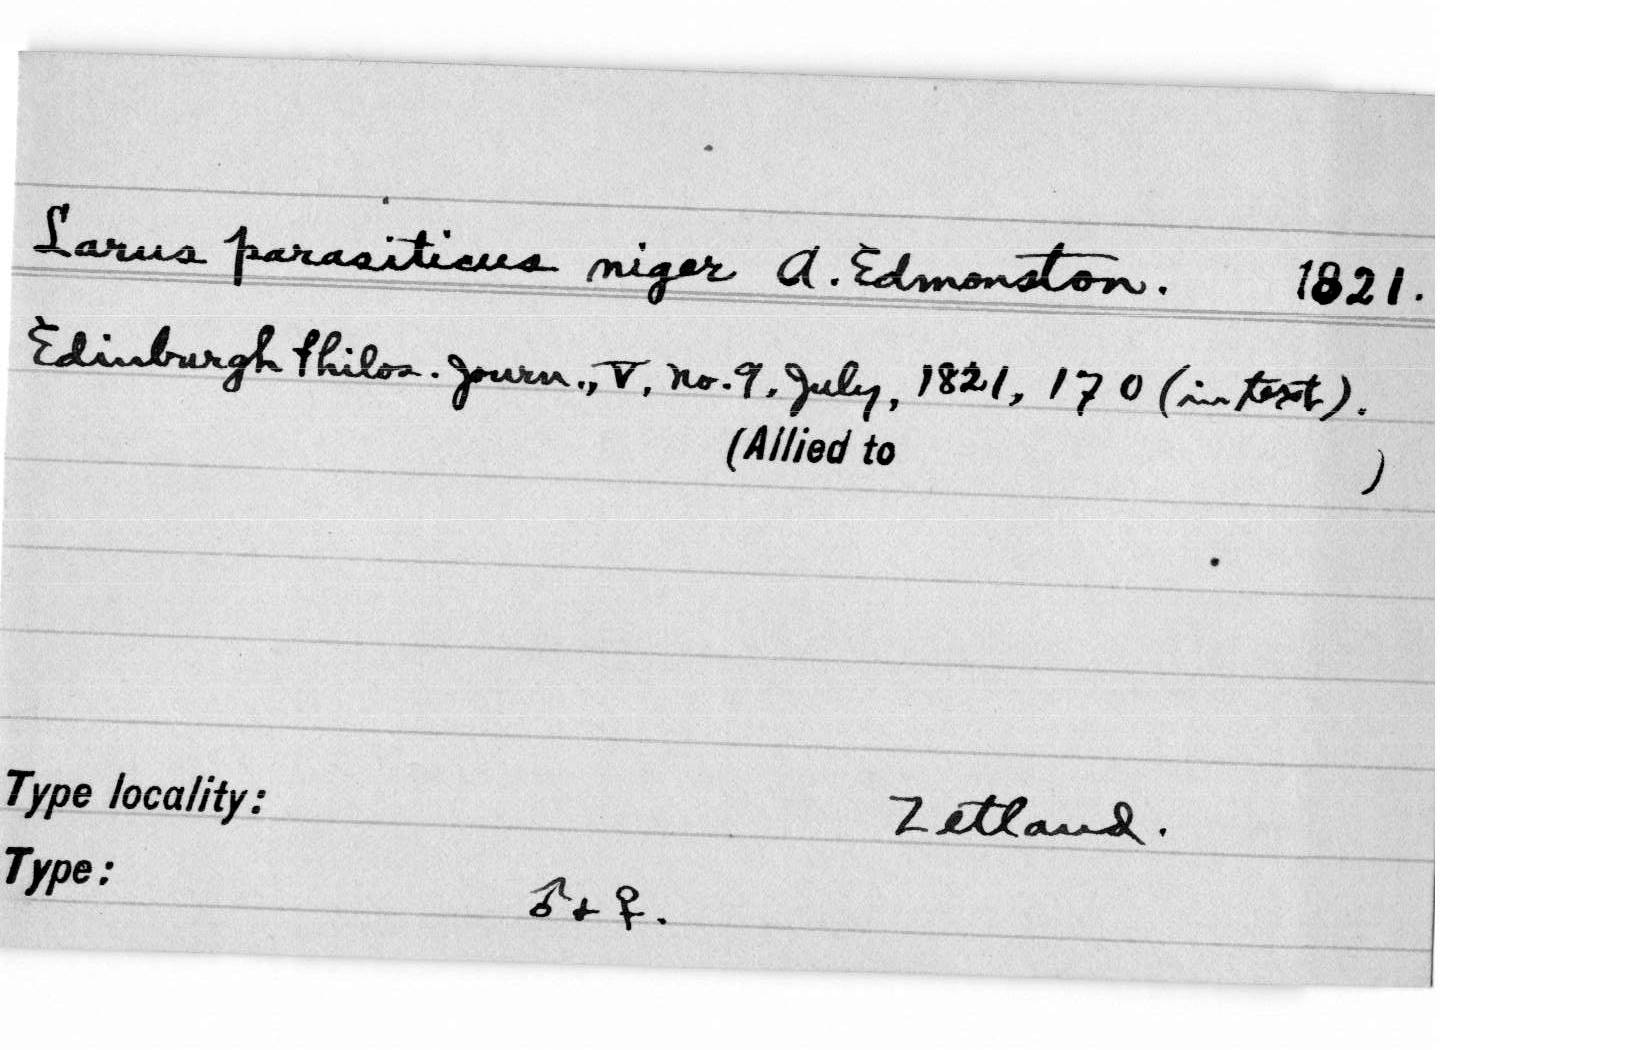 Larus parasiticus niger A. Edmonston. 1821.
Edinburgh Philos. Journ., V, No. 9, July, 1821, 170 (in text).
(Allied to )
Type locality: Zetland.
Type: ♂ + ♀.